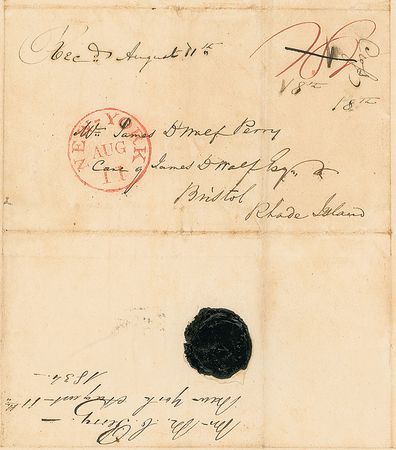 Rec'd August 11th
18th
18th
NEW-YORK
AUG
11
Mr James DWolf Perry
Care of James DWolf Esqr
Bristol
Rhode Island
Mr. M. C. Perry. –
New York August 11th
1834. –